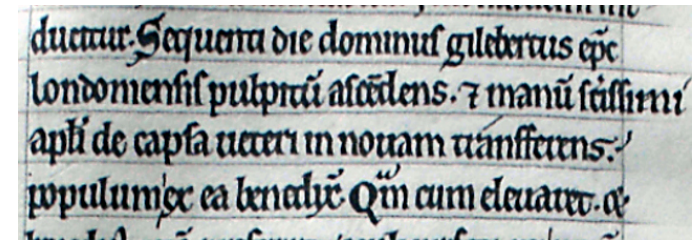 ducitur. Sequenti die dominus gilebertus ep̄c
londoniensis pulpitū ascēdens. ⁊ manū sc̄issimi
apl̄i de capsa ueteri in nouam transferens.
populum ex ea benedix̄. Qm̄ cum eleuaret. &